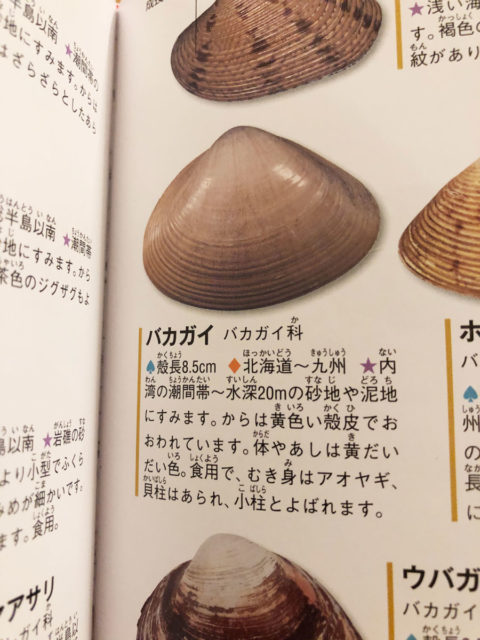 半島以南
地にすみます。からは
★潮間帯の
はざらざらとしたあら
半島以南 ★潮間帯
地にすみます。から
茶色のジグザグもよ
島以南 ★岩礁の砂
より小型でふくら
みめが細かいです。
ます。食用。
アサリ
ガイ科
★浅い海
す。褐色の
紋があり
バカガイ バカガイ科
♠殻長8.5cm ♦北海道〜九州 ★内
湾の潮間帯〜水深20mの砂地や泥地
にすみます。からは黄色い殻皮でお
おわれています。体やあしは黄だい
だい色。食用で、むき身はアオヤギ、
貝柱はあられ、小柱とよばれます。
ホ
バ
♠
州
の
長
に
ウバガ
バカガイ
♠殻